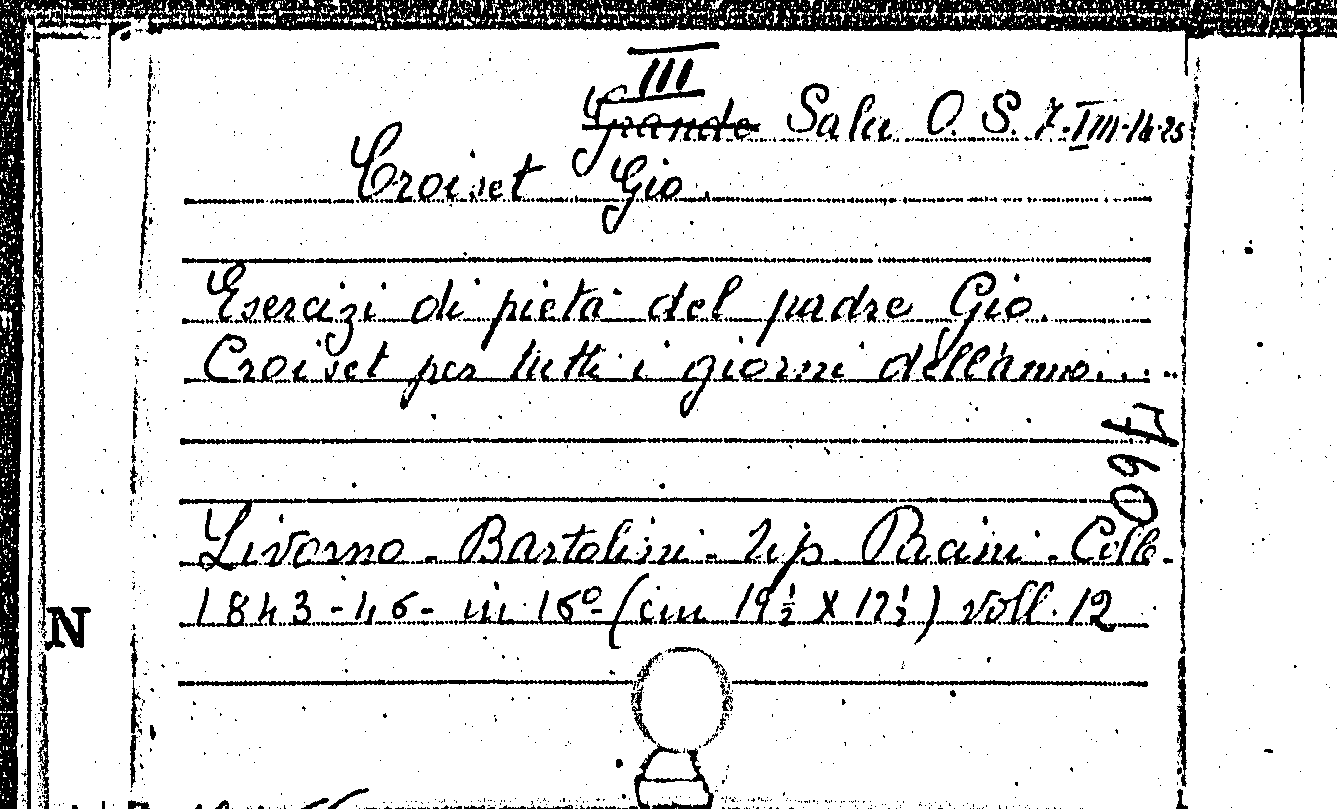 III
Grande Sala O. S. 7-III-14-25
Croiset Gio.
Esercizi di pietà del padre Gio.
Croiset per tutti i giorni dell'anno....
760
Livorno - Bartolini - Tip. Pacini - Colle -
1843-46- in 16° (cm 19½ X 12½) voll. 12
N